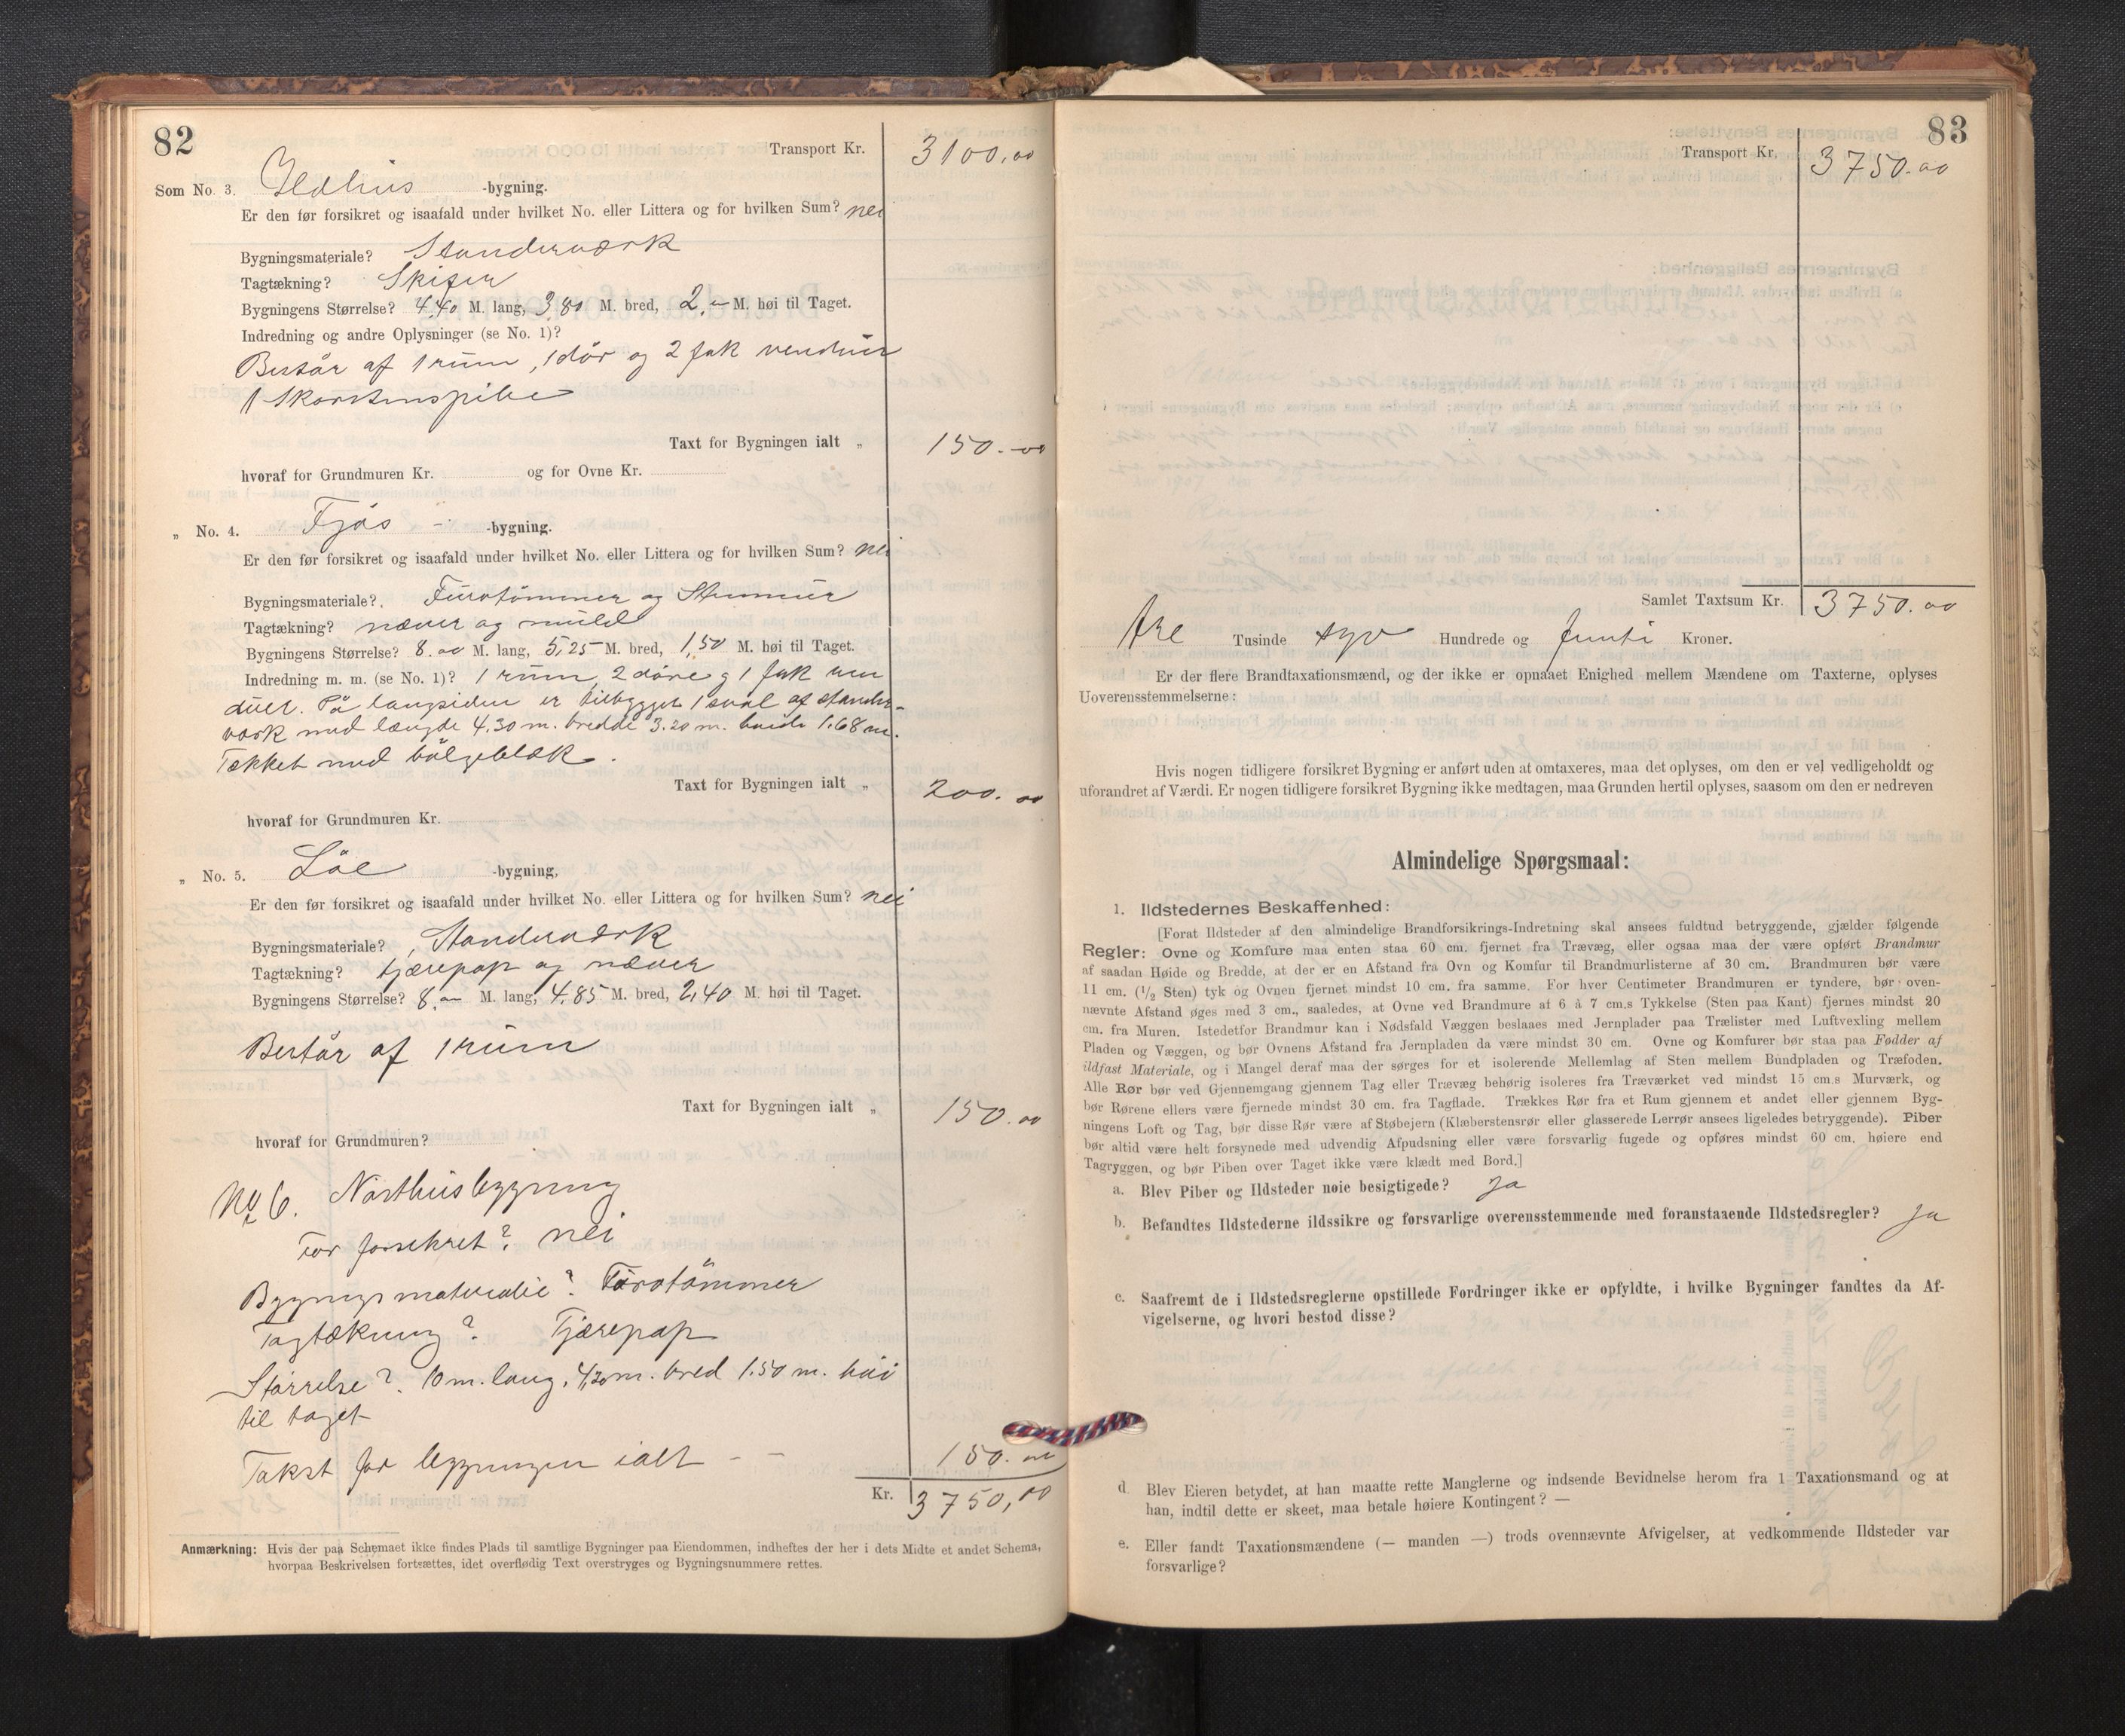 82
Transport Kr. 3100,00
Som No. 3. Ildhus -bygning.
Er den før forsikret og isaafald under hvilket No. eller Littera og for hvilken Sum? nei
Bygningsmateriale? Standerværk
Tagtækning? Skifer
Bygningens Størrelse? 4,40 M. lang, 3,80 M. bred, 2,00 M. høi til Taget.
Indredning og andre Oplysninger (se No. 1)?
Består af 1 rum, 1 dör og 2 fak venduer
1 Skorstenspibe
Taxt for Bygningen ialt „ 150.00
hvoraf for Grundmuren Kr. og for Ovne Kr.
„ No. 4. Fjös - -bygning.
Er den før forsikret og isaafald under hvilket No. eller Littera og for hvilken Sum? nei
Bygningsmateriale? Furotömmer og Stenmur
Tagtækning? næver og muld
Bygningens Størrelse? 8.00 M. lang, 5,25 M. bred, 1,50 M. høi til Taget.
Indredning m. m. (se No. 1)? 1 rum, 2 döre g 1 fak ven
duer. På langsiden er tilbygget 1 sval af stander-
værk med længde 4.30 m. bredde 3.20 m. höide 1.68 m.
Tækket med bölgeblæk.
Taxt for Bygningen ialt „ 200.00
hvoraf for Grundmuren Kr.
„ No. 5. Löe -bygning,
Er den før forsikret og isaafald under hvilket No. eller Littera og for hvilken Sum? nei
Bygningsmateriale? Standerværk
Tagtækning? tjærepap og næver
Bygningens Størrelse? 8.00 M. lang, 4,85 M. bred, 2,40 M. høi til Taget.
Består af 1 rum
Taxt for Bygningen ialt „ 150.00
hvoraf for Grundmuren?
No 6. Nörthusbygning
För forsikret? nei
Bygningsmateriale? Furotömmer
Tagtækning? Tjærepap
Störrelse? 10 m. lang, 4,20 m. bred 1.50 m. höi
til taget
Takst for bygningen ialt - - 150.00
Kr. 3750,00
Anmærkning: Hvis der paa Schemaet ikke findes Plads til samtlige Bygninger paa Eiendommen, indheftes der her i dets Midte et andet Schema,
hvorpaa Beskrivelsen fortsættes, idet overflødig Text overstryges og Bygningsnummere rettes.
83
Transport Kr. 3750.00
Samlet Taxtsum Kr. 3750.00
Tre Tusinde syv Hundrede og femti Kroner.
Er der flere Brandtaxationsmænd, og der ikke er opnaaet Enighed mellem Mændene om Taxterne, oplyses
Uoverensstemmelserne:
Hvis nogen tidligere forsikret Bygning er anført uden at omtaxeres, maa det oplyses, om den er vel vedligeholdt og
uforandret af Værdi. Er nogen tidligere forsikret Bygning ikke medtagen, maa Grunden hertil oplyses, saasom om den er nedreven
Almindelige Spørgsmaal:
1. Ildstedernes Beskaffenhed:
[Forat Ildsteder af den almindelige Brandforsikrings-Indretning skal ansees fuldtud betryggende, gjælder følgende
Regler: Ovne og Komfure maa enten staa 60 cm. fjernet fra Trævæg, eller ogsaa maa der være opført Brandmur
af saadan Høide og Bredde, at der er en Afstand fra Ovn og Komfur til Brandmurlisterne af 30 cm. Brandmuren bør være
11 cm. (1/2 Sten) tyk og Ovnen fjernet mindst 10 cm. fra samme. For hver Centimeter Brandmuren er tyndere, bør oven-
nævnte Afstand øges med 3 cm., saaledes, at Ovne ved Brandmure af 6 à 7 cm.s Tykkelse (Sten paa Kant) fjernes mindst 20
cm. fra Muren. Istedetfor Brandmur kan i Nødsfald Væggen beslaaes med Jernplader paa Trælister med Luftvexling mellem
Pladen og Væggen, og bør Ovnens Afstand fra Jernpladen da være mindst 30 cm. Ovne og Komfurer bør staa paa Fødder af
ildfast Materiale, og i Mangel deraf maa der sørges for et isolerende Mellemlag af Sten mellem Bundpladen og Træfoden.
Alle Rør bør ved Gjennemgang gjennem Tag eller Trævæg behørig isoleres fra Træværket ved mindst 15 cm.s Murværk, og
bør Rørene ellers være fjernede mindst 30 cm. fra Tagflade. Trækkes Rør fra et Rum gjennem et andet eller gjennem Byg-
ningens Loft og Tag, bør disse Rør være af Støbejern (Klæberstensrør eller glasserede Lerrør ansees ligeledes betryggende). Piber
bør altid være helt forsynede med udvendig Afpudsning eller være forsvarlig fugede og opføres mindst 60 cm. høiere end
Tagryggen, og bør Piben over Taget ikke være klædt med Bord.]
a. Blev Piber og Ildsteder nøie besigtigede? Ja
b. Befandtes Ildstederne ildssikre og forsvarlige overensstemmende med foranstaaende Ildstedsregler? Ja
c. Saafremt de i Ildstedsreglerne opstillede Fordringer ikke er opfyldte, i hvilke Bygninger fandtes da Af-
vigelserne, og hvori bestod disse?
d. Blev Eieren betydet, at han maatte rette Manglerne og indsende Bevidnelse herom fra 1 Taxationsmand og at
han, indtil dette er skeet, maa betale høiere Kontingent? —
e. Eller fandt Taxationsmændene (— manden —) trods ovennævnte Afvigelser, at vedkommende Ildsteder var
forsvarlige?